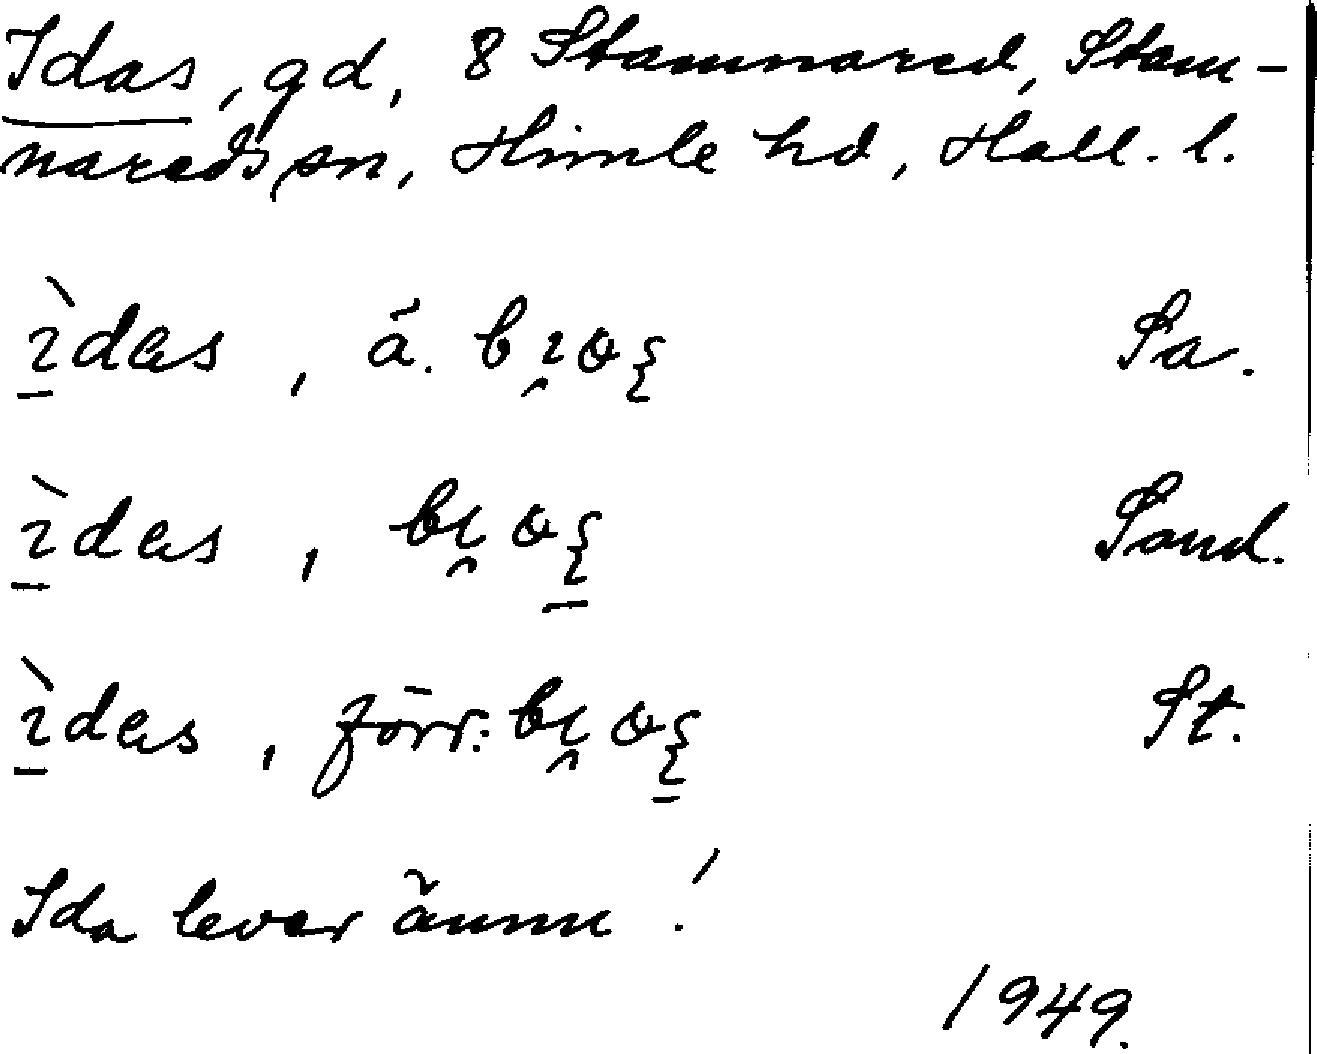 Idas, gd, 8 Stamnared, Stam-
nareds sn, Himle hd, Hall. l.
ìdas, ä. Sa.
ìdas, Sand.
ìdas, förr: St.
Ida lever ännu!
1949.